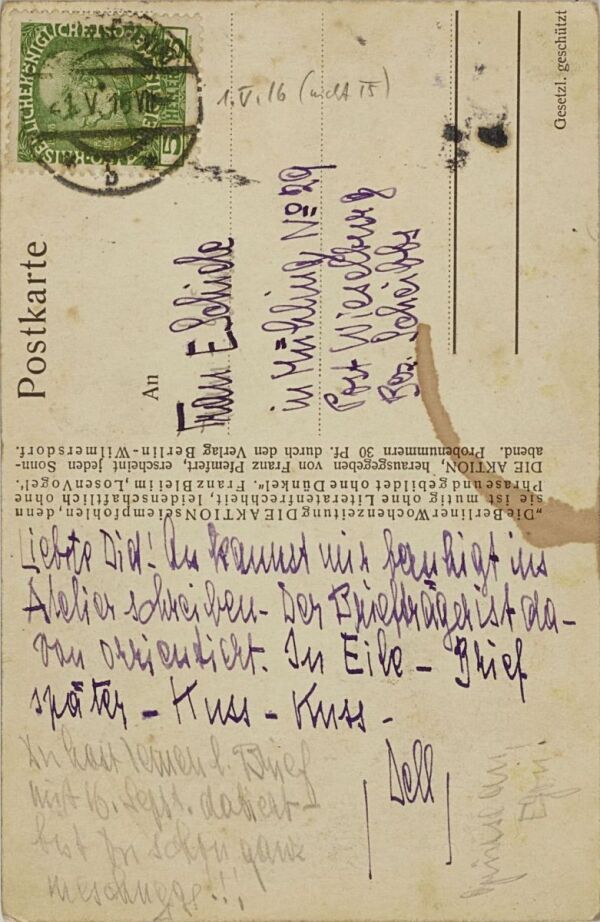 Postkarte
An
Frau E. Schiele
in Mühling No 29
Post Wieselburg
Bez. Scheibbs
Gesetzl. geschützt
1.V.16 (nicht 15)
5
„Die Berliner Wochenzeitung DIE AKTION sei empfohlen, denn
sie ist mutig ohne Literatenfrechheit, leidenschaftlich ohne
Phrase und gebildet ohne Dünkel“. Franz Blei im „Losen Vogel“.
DIE AKTION, herausgegeben von Franz Pfemfert, erscheint jeden Sonn-
abend. Probenummern 30 Pf. durch den Verlag Berlin-Wilmersdorf.
Liebste Did! Du kannst mir ins
Atelier schreiben – Der Briefträger ist da-
von orrientiert. In Eile – Brief
später – Kuss – Kuss –
Du hast l. Brief
mit 16. Sept. datiert –
bist Du schon ganz
meschugge!!!